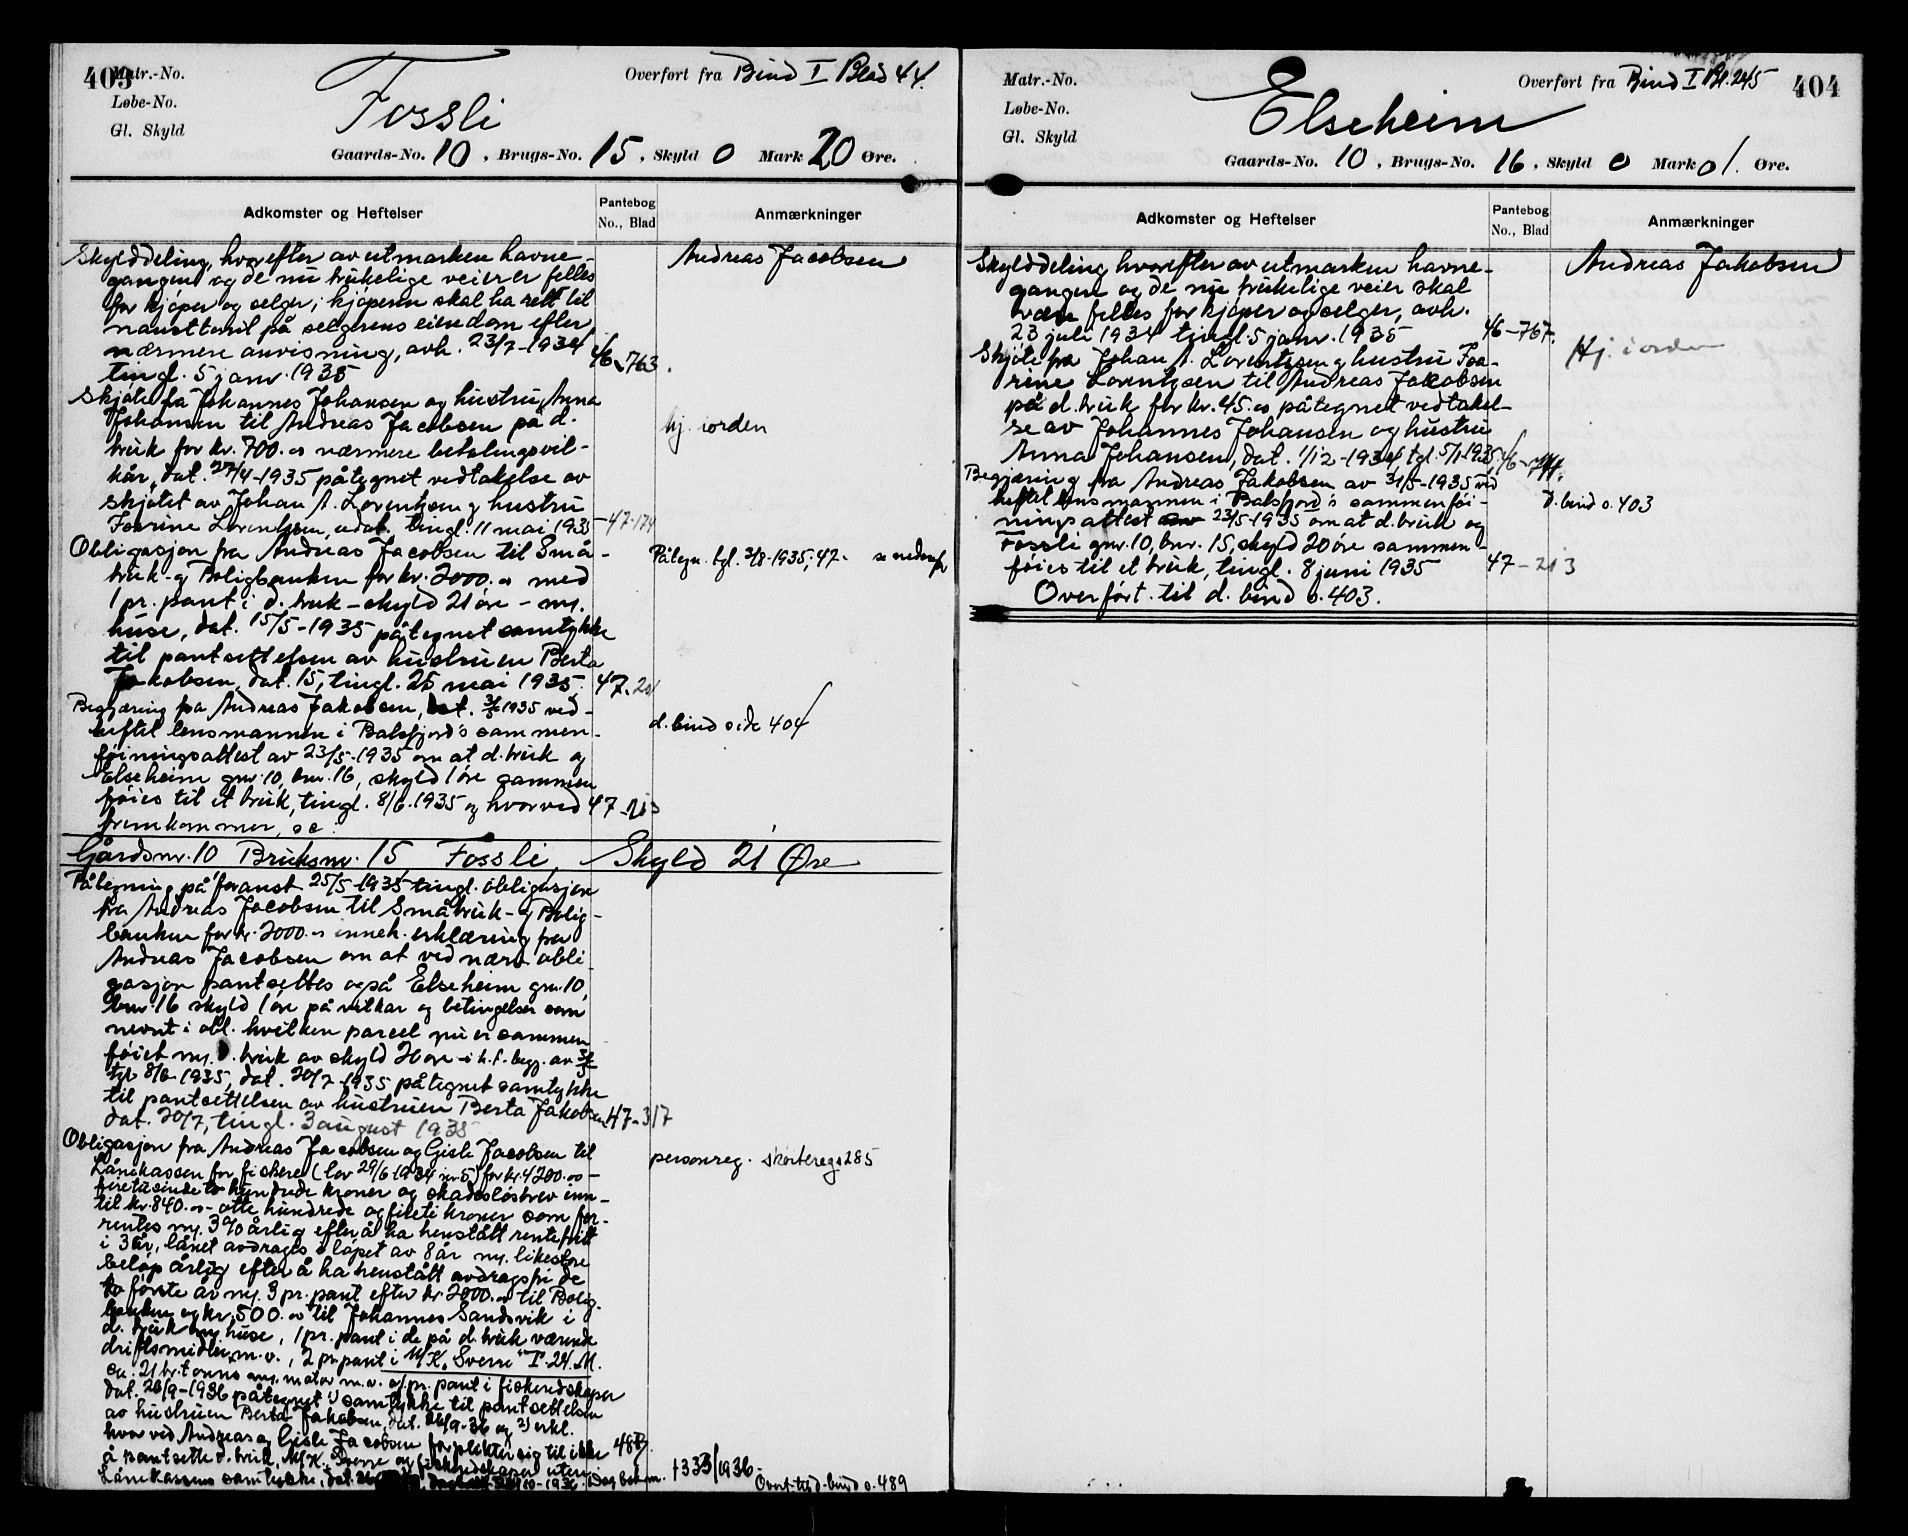 403
Matr.-No.
Løbe-No.
Gl. Skyld
Overført fra Bind I Blad 44.
Fossli
Gaards-No. 10, Brugs-No. 15, Skyld 0 Mark 20 Øre.
Adkomster og Heftelser
Pantebog
No., Blad
Anmærkninger
Skylddeling, hvorefter av utmarken havne-
gangen og de nu brukelige veier er felles
for kjøper og selger, kjøperen skal ha rett til
nausttomt på selgerens eiendom efter
nærmere anvisning, avh. 23/7-1934
tingl. 5 janv. 1935
46-763.
Andreas Jacobsen
Skjøte fra Johannes Johansen og hustru Anna
Johansen til Andreas Jacobsen på d.
bruk for kr. 700.00 nærmere betalingsvil-
kår, dat. 27/4-1935 påtegnet vedtakelse av
skjøtet av Johan A. Lorentzen og hustru
Josrine Lorentzen, udat. tingl. 11 mai 1935
47-174
hj. iorden
Obligasjon fra Andreas Jacobsen til Små-
bruk- og Boligbanken for kr. 2000.00 med
1 pr. pant i d. bruk - skyld 21 øre - m.
huse, dat. 15/5-1935 påtegnet samtykke
til pantsettelsen av hustruen Berta
Jakobsen, dat. 15, tingl. 25 mai 1935.
47-201
Påtegn. tgl. 3/8-1935, 47. se nedenfor
Begjæring fra Andreas Jakobsen, dat. 31/5 1935 ved-
heftet lensmannen i Balsfjord's sammen-
føiningsattest av 23/5-1935 om at d. bruk og
Elseheim gnr. 10, bnr. 16, skyld 1 øre sammen
føies til et bruk, tingl. 8/6-1935 og hvorved
fremkommer, se:
47-213
d. bind side 404
Gårdsnr. 10 Bruksnr. 15 Fossli, Skyld 21 Øre
Påtegning på foranst. 25/5-1935 tingl. obligasjon
fra Andreas Jacobsen til Småbruk- og Bolig-
banken for kr. 2000.00 inneh. erklæring fra
Andreas Jacobsen om at ved nærv. obli-
gasjon pantsettes også Elseheim gnr. 10,
bnr. 16 skyld 1 øre på vilkår og betingelser som
nevnt i obl. hvilken parcel nu er sammen
føiet m. d. bruk av skyld 20 øre i h. t. begj. av 31/5
tgl. 8/6-1935, dat. 20/7-1935 påtegnet samtykke
til pantsettelsen av hustruen Berta Jakobsen
dat. 20/7, tingl. 3 august 1935
47-317
Obligasjon fra Andreas Jacobsen og Gisle Jacobsen til
Lånekassen for fiskere (lov 29/6 1934 nr. 5) for kr. 4200.00 -
firetusinde to hundrede kroner og skadesløsbrev inn-
til kr. 840.00 - otte hundrede og fireti kroner som for-
rentes m. 3% årlig efter å ha henstått rentefritt
i 3 år, lånet avdrages i løpet av 8 år m. likestore
beløp årlig efter å ha henstått avdragsfri de
to første år m. 3 pr. pant efter kr. 2000.00 til Bolig-
banken og kr. 500.00 til Johannes Sandsvik i
d. bruk m. huse, 1 pr. pant i de på d. bruk værende
driftsmidler m. v., 2 pr. pant i M/K. "Sverre" T. 24. M.
ca. 21 br. tonns m. motor m. v. og pr. pant i fiskeredskaper
dat. 26/9-1936 påtegnet 1) samtykke til pantsettelsen
av hustruen Berta Jakobsen, dat. 26/9-36 og 2) erkl.
hvorved Andreas og Gisle Jacobsen forplikter sig til ikke
å pantsette d. bruk, M/K. Sverre og fiskeredskaper uten
Lånekassens samtykke, dat. 10-1936. Dagboknr.
1333/1936.
personreg. skibsreg 285
Overf. til d. bind s. 489
404
Matr.-No.
Løbe-No.
Gl. Skyld
Overført fra Bind I Bl. 245
Elseheim
Gaards-No. 10, Brugs-No. 16, Skyld 0 Mark 01. Øre.
Adkomster og Heftelser
Pantebog
No., Blad
Anmærkninger
Skylddeling hvorefter av utmarken havne-
gangen og de nu brukelige veier skal
være felles for kjøper og selger, avh.
23 juli 1934 tingl. 5 janv. 1935
46-767.
Andreas Jakobsen
Skjøte fra Johan A. Lorentzen og hustru Jos-
rine Lorentzen til Andreas Jacobsen
på d. bruk for kr. 45.00 påtegnet vedtakel-
se av Johannes Johansen og hustru
Anna Johansen, dat. 1/12-1934, tgl. 5/1-1935
Hj. iorden
Begjæring fra Andreas Jakobsen av 31/5-1935 ved
heftet lensmannen i Balsfjord's sammenføi-
ningsattest 23/5-1935 om at d. bruk og
Fossli gnr. 10, bnr. 15, skyld 20 øre sammen-
føies til et bruk, tingl. 8 juni 1935
47-213
d. bind s. 403
Overført til d. bind s. 403.